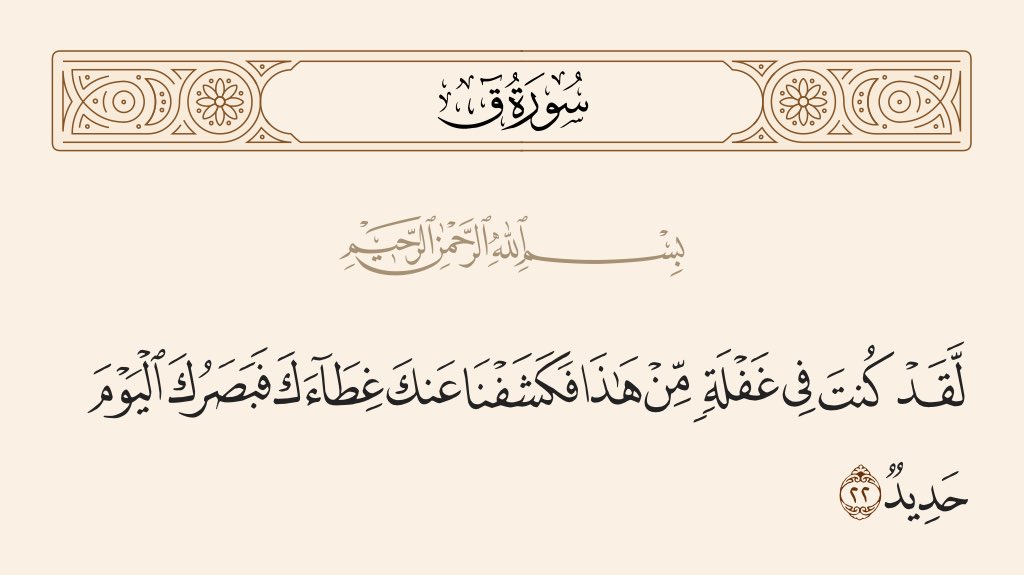 سُورَةُ قٓ
بِسْمِ ٱللَّهِ ٱلرَّحْمَٰنِ ٱلرَّحِيمِ
لَّقَدْ كُنتَ فِى غَفْلَةٍ مِّنْ هَٰذَا فَكَشَفْنَا عَنكَ غِطَآءَكَ فَبَصَرُكَ ٱلْيَوْمَ
حَدِيدٌ ٢٢